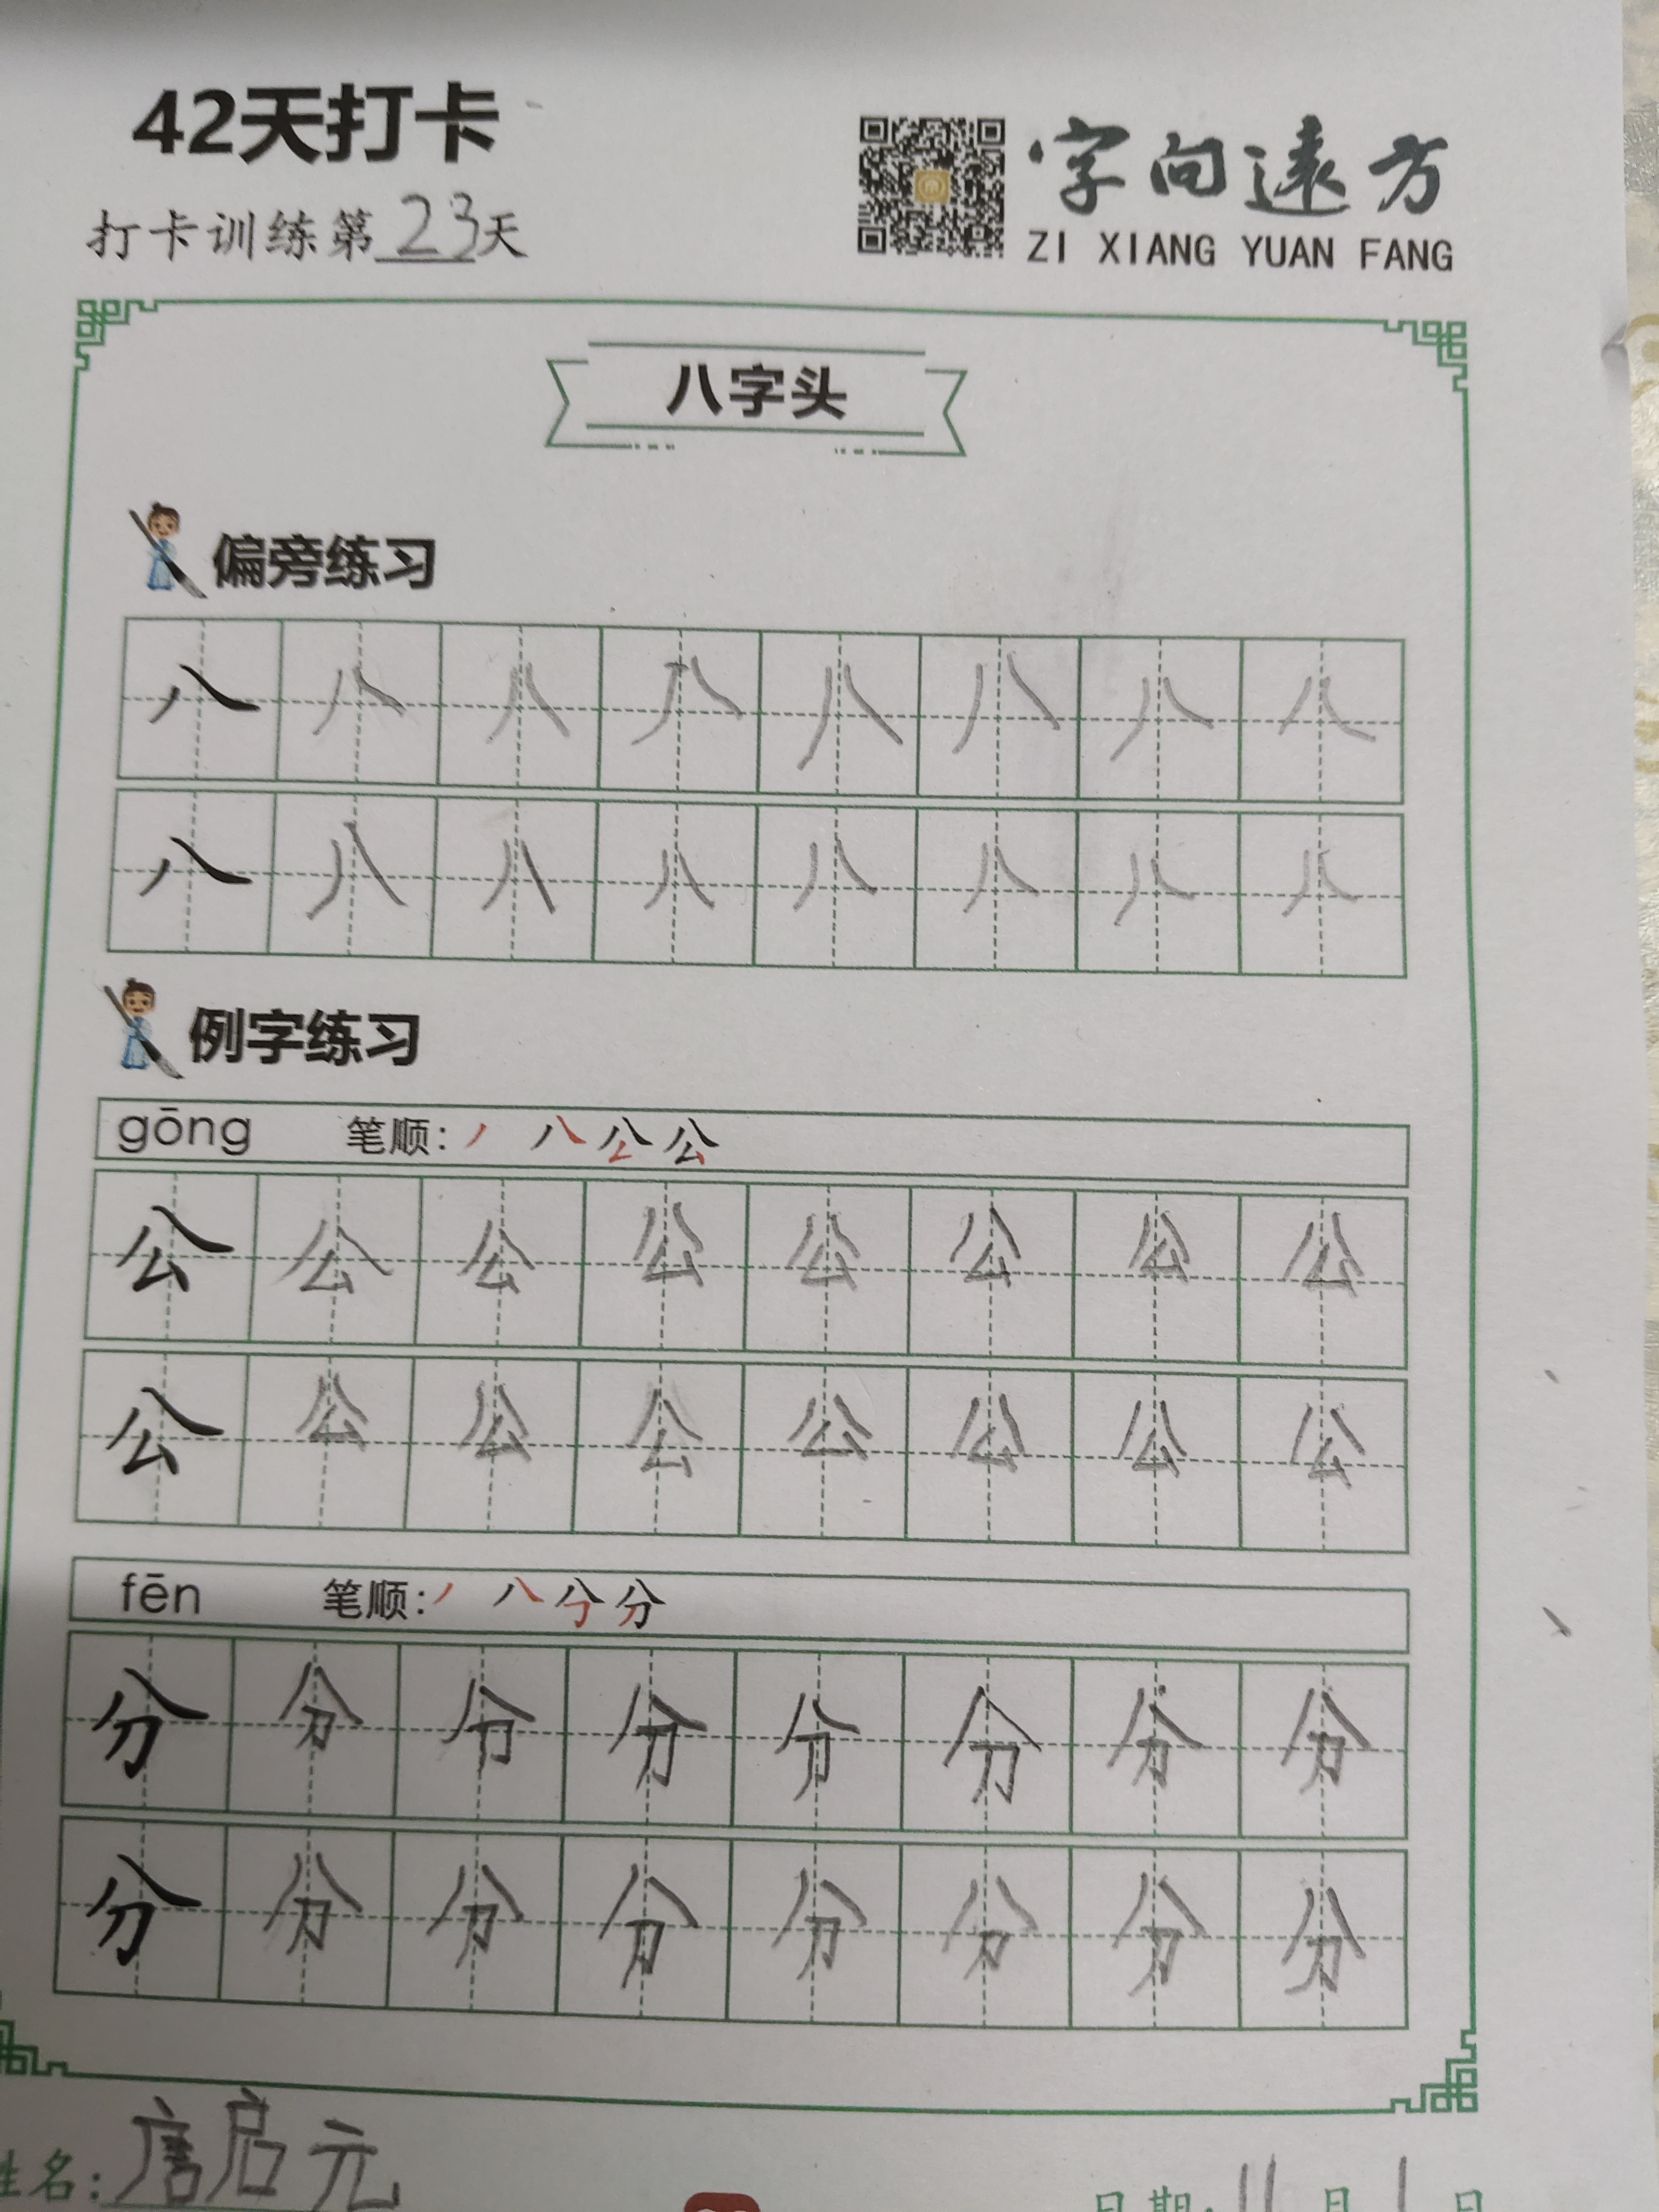 42天打卡
字向遠方
打卡训练第23天
ZI XIANG YUAN FANG
八字头
偏旁练习
八 八 八 八 八 八 八 八
八 八 八 八 八 八 八 八
例字练习
gōng 笔顺: 丿 八 公 公
公 公 公 公 公 公 公 公
公 公 公 公 公 公 公 公
fēn 笔顺: 丿 八 分 分
分 分 分 分 分 分 分 分
分 分 分 分 分 分 分 分
姓名: 唐启元 日期: 11月1日